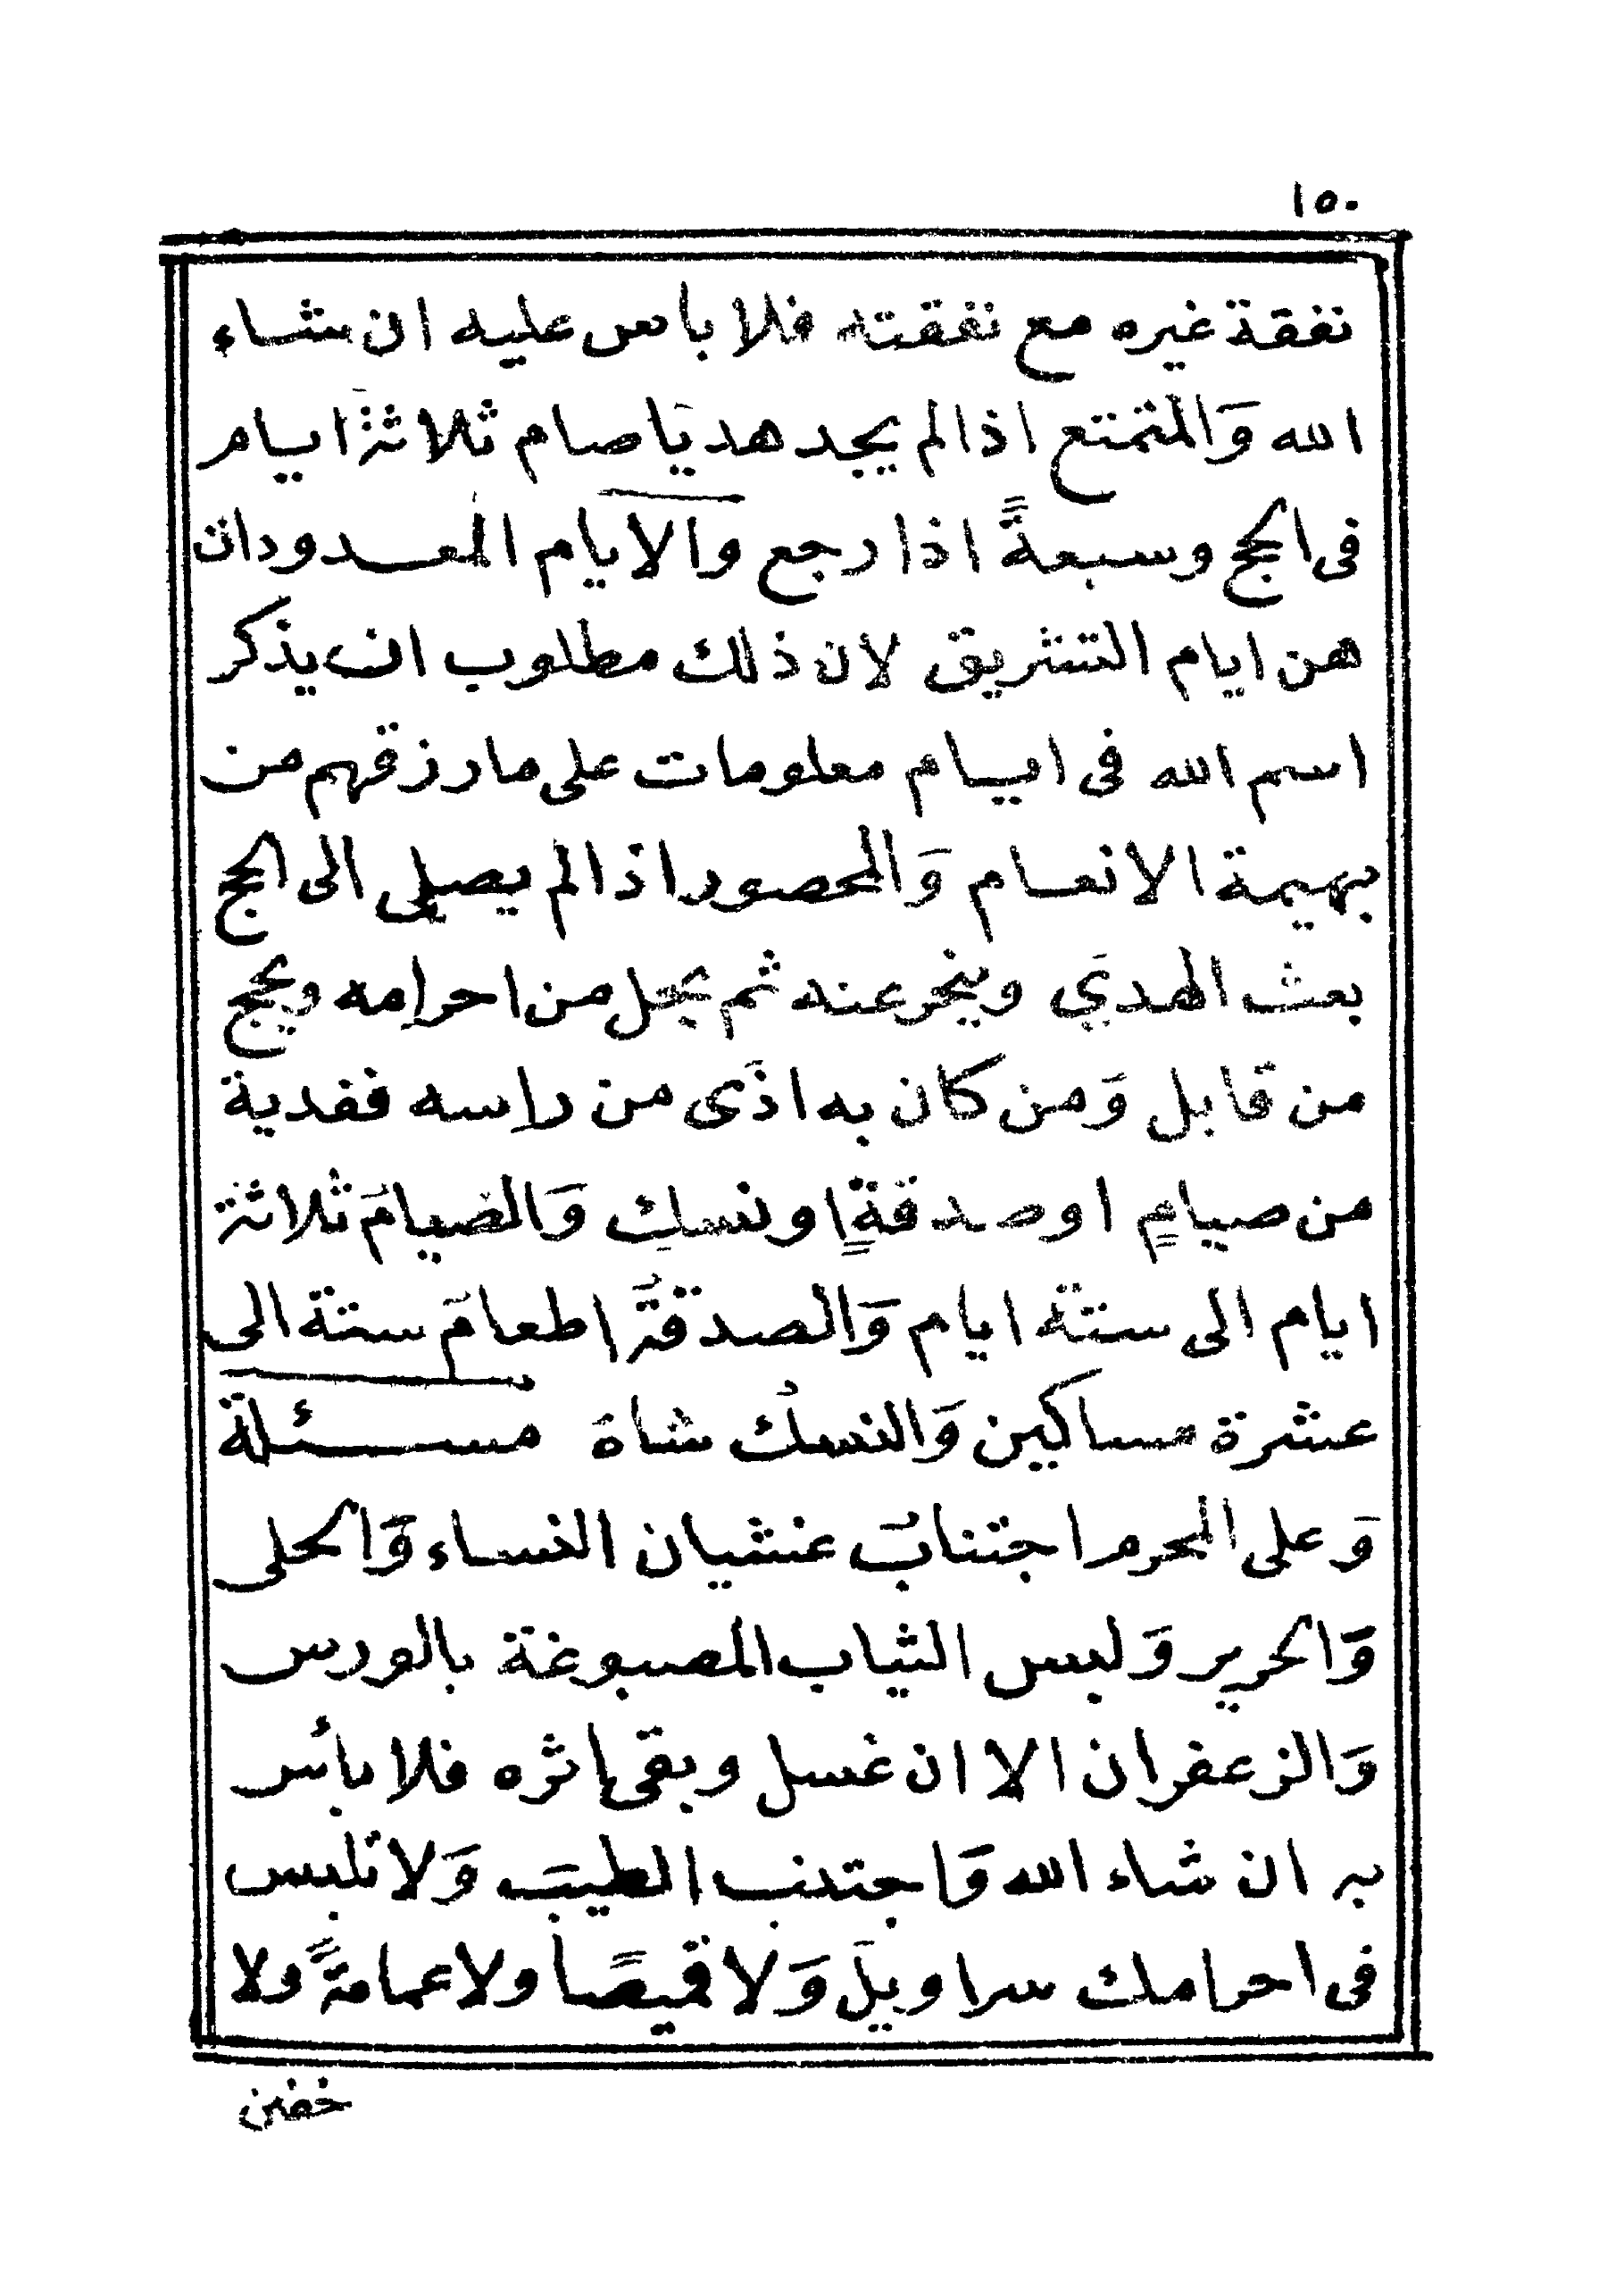 ١٥٠
نفقة غيره مع نفقته فلا باس عليه ان شاء
الله وَالمتمتع اذا لم يجد هديَا صام ثلاثةَ ايام
فى الحج وسبعةً اذا رجع والايام المعدودات
هن ايام التشريق لان ذلك مطلوب ان يذكر
اسم الله فى ايام معلومات على ما رزقهم من
بهيمة الانعام وَالمحصور اذا لم يصلى الى الحج
بعث الهدَي وينحر عنه ثم يحل من احرامه ويحج
من قابل وَمن كان به اذَى من راسه ففدية
من صيامٍ او صدقةٍ او نسكِ وَالصيامَ ثلاثة
ايام الى ستة ايام وَالصدقةُ اطعامَ ستة الى
عشرة مساكين وَالنسكُ شاة مسئلة
وَعلى المحرم اجتنابُ غشيان النساء وَالحلى
وَالحرير وَلبس الثياب المصبوغة بالورس
وَالزعفران الا ان غسل وبقى اثره فلا بأس
به ان شاء الله وَاجتنب الطيبَ وَلا تلبس
فى احرامك سراويلَ وَلا قميصًا ولا عمامةً ولا
خفين